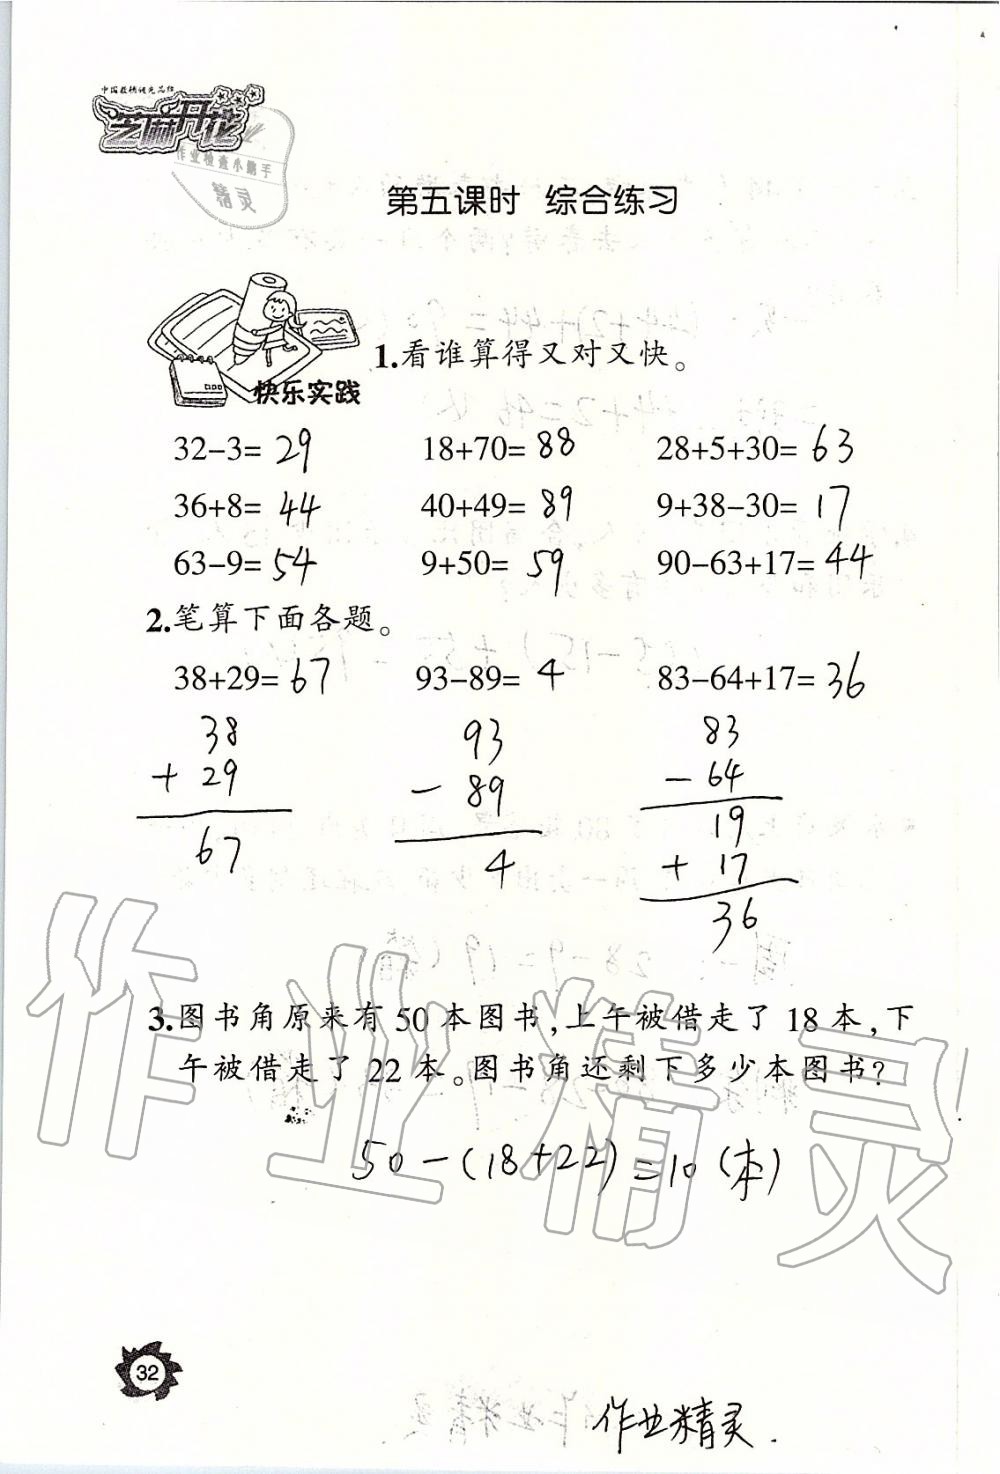 中国教辅领先品牌
芝麻开花
作业检查小助手
精灵
第五课时 综合练习
快乐实践
1.看谁算得又对又快。
32-3= 29 18+70= 88 28+5+30= 63
36+8= 44 40+49= 89 9+38-30= 17
63-9= 54 9+50= 59 90-63+17= 44
2.笔算下面各题。
38+29= 67 93-89= 4 83-64+17= 36
38 93 83
+ 29 - 89 - 64
67 4 19
+ 17
36
3.图书角原来有 50 本图书,上午被借走了 18 本,下
午被借走了 22 本。图书角还剩下多少本图书?
50-(18+22)=10(本)
作业精灵
32
作业精灵.